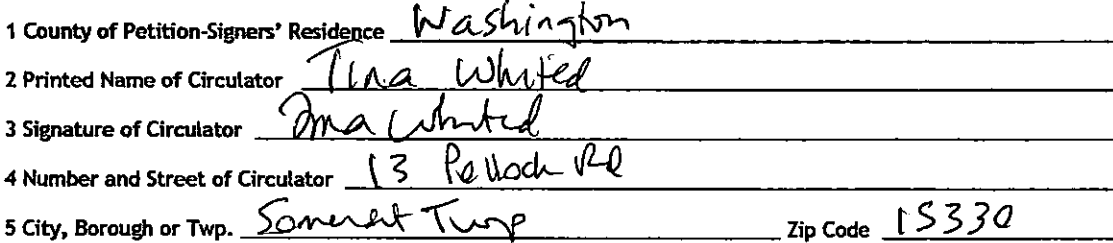 1 County of Petition-Signers' Residence Washington
2 Printed Name of Circulator Tina Whited
3 Signature of Circulator Tina Whited
4 Number and Street of Circulator 13 Rd
5 City, Borough or Twp. Somerset Twp Zip Code 15330